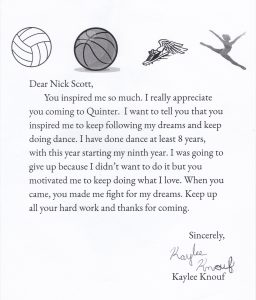 Dear Nick Scott,
You inspired me so much. I really appreciate
you coming to Quinter. I want to tell you that you
inspired me to keep following my dreams and keep
doing dance. I have done dance at least 8 years,
with this year starting my ninth year. I was going to
give up because I didn't want to do it but you
motivated me to keep doing what I love. When you
came, you made me fight for my dreams. Keep up
all your hard work and thanks for coming.
Sincerely,
Kaylee
Knouf
Kaylee Knouf